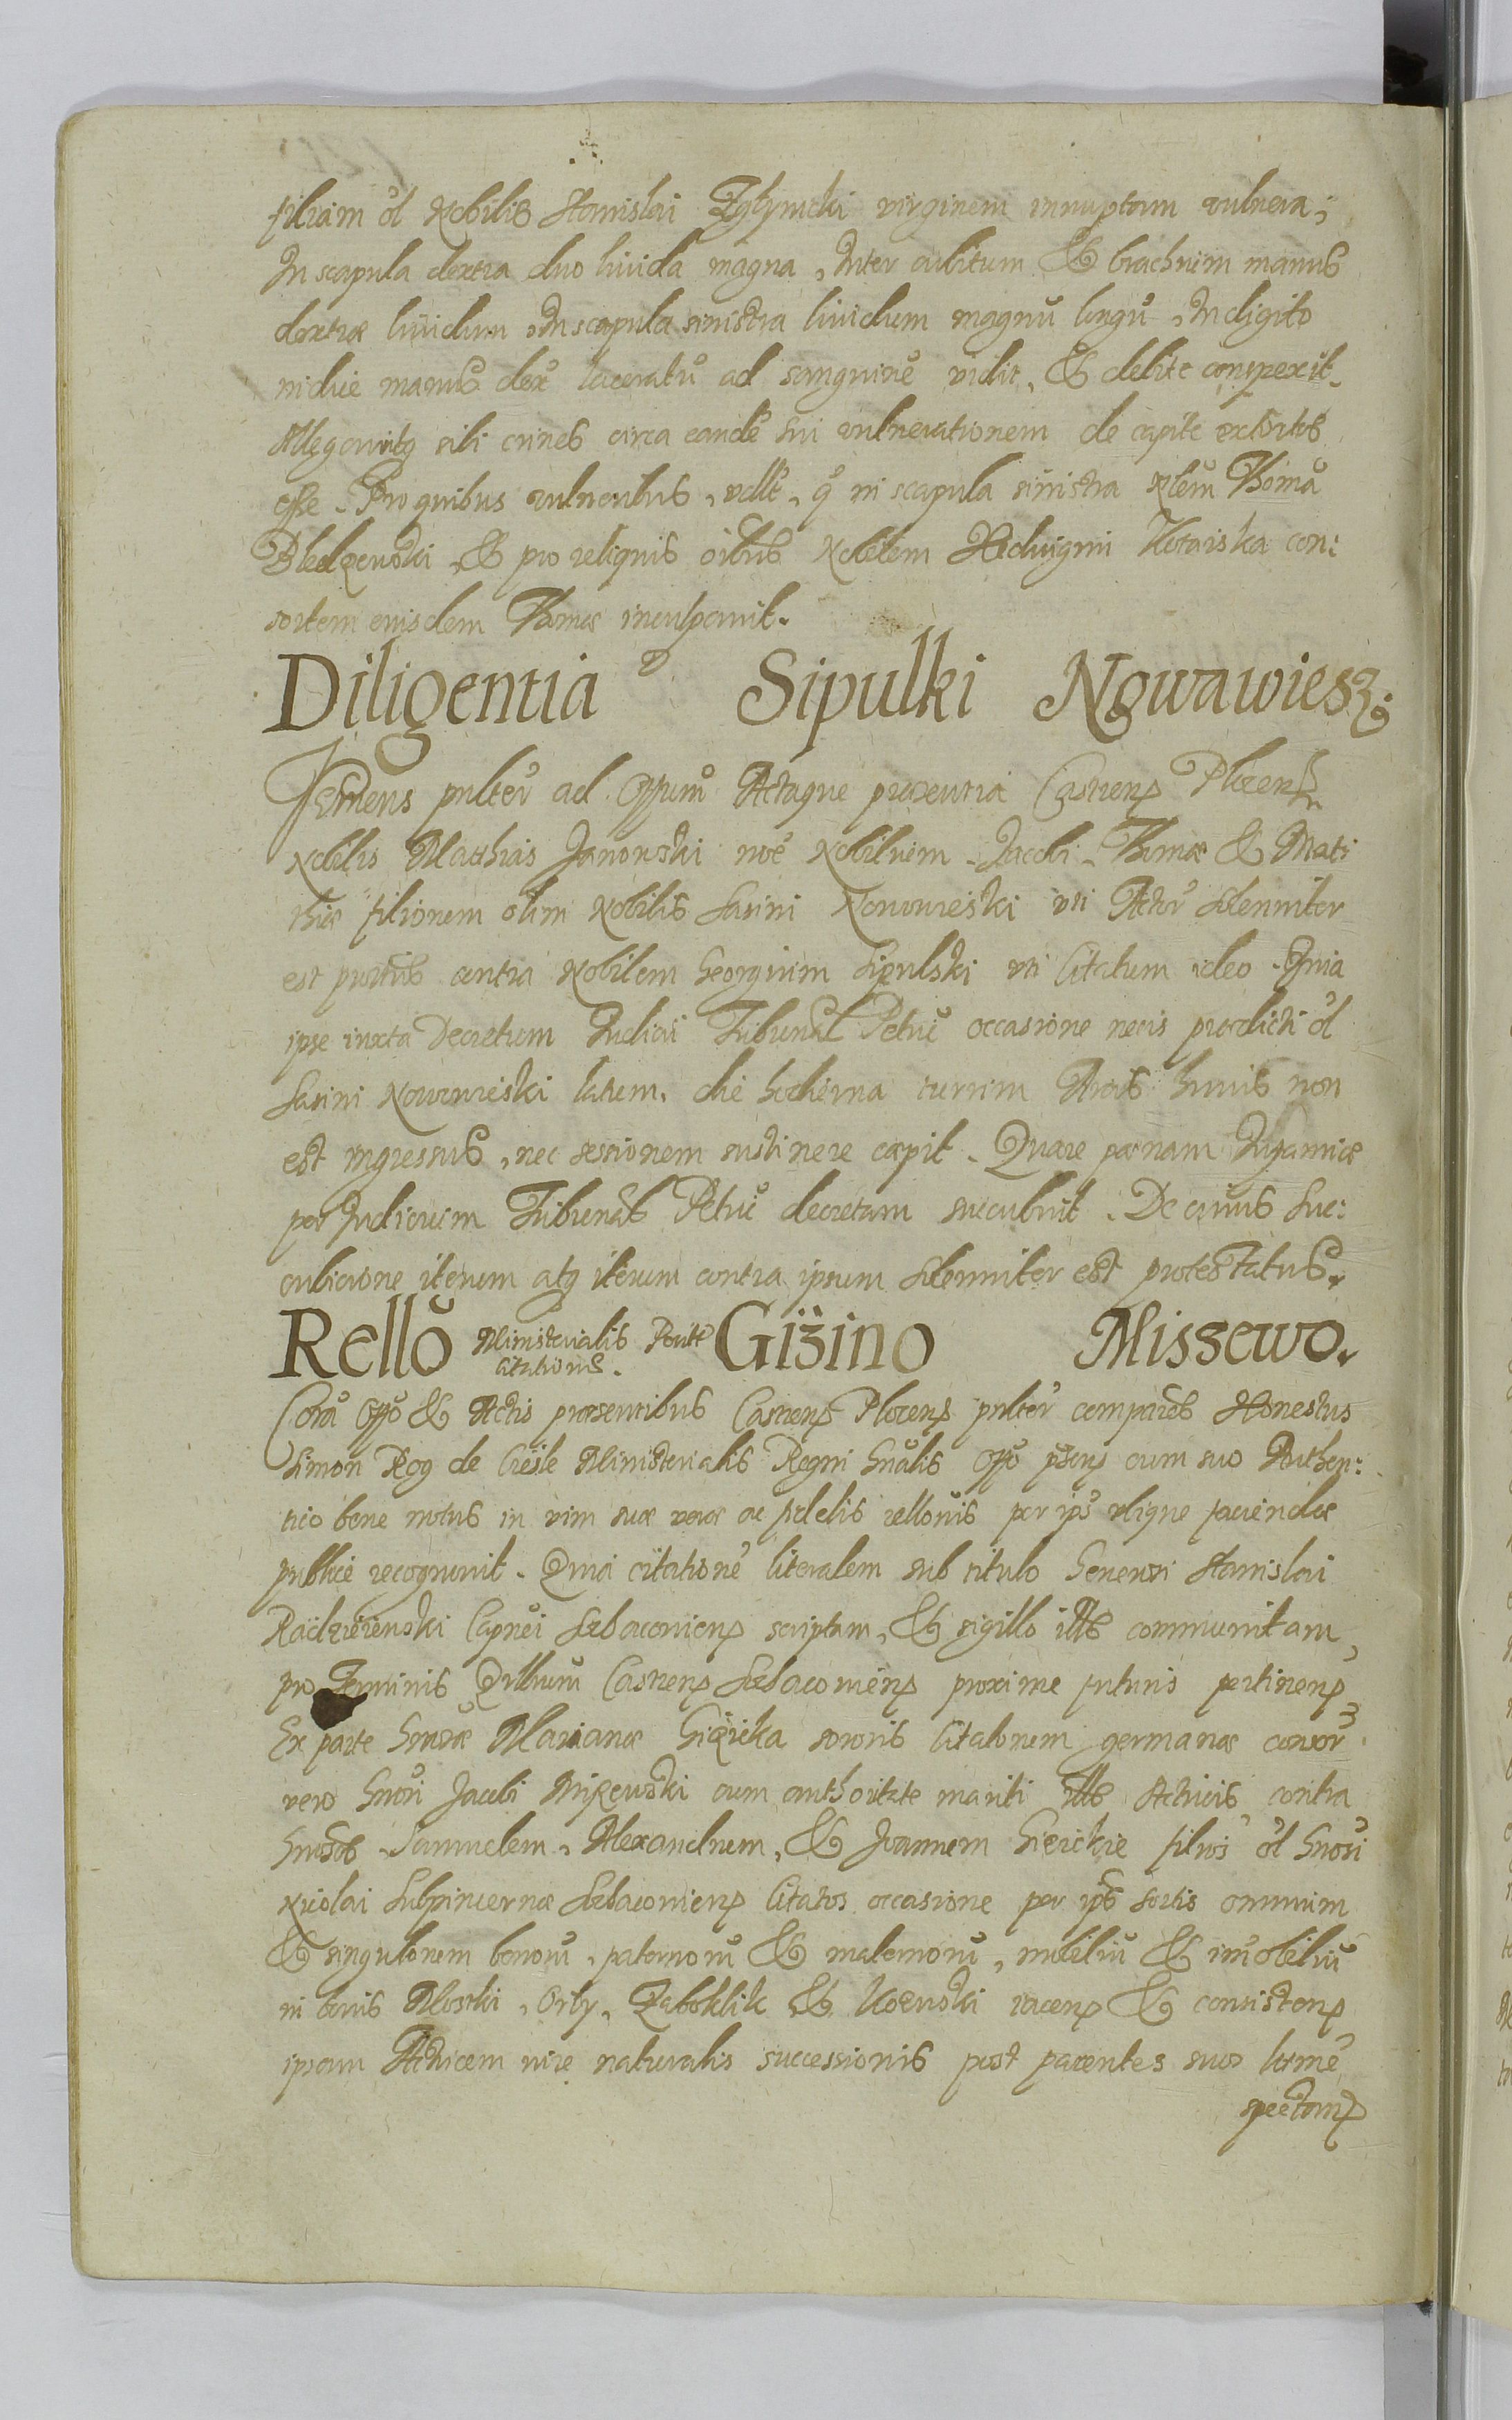 filiam ol Nobilis Stanislai Zglynicki virginem innuptam vulnera;
In scapula dextra duo livida magna, Inter cubitum & brachium manus
dextræ lividum, In scapula sinistra lividum magnū longū, In digito
manus dex laceratū ad sanguinē vidit, & debite conspexit.
sibi crines circa eandē sui vulnerationem de capite extortos
esse. Pro quibus vulneribus, vdlt, q in scapula sinistra Nlem Thomā
& pro reliquis oibus Nobilem Hedvigim con:
sortem eiusdem Thomæ inculpavit.
Diligentia Sipulki Ngwawiesz;
Veniens pulter ad Offum Actaque præsentia Castrens Plocens
Nobilis Matthias Janowski noē Nobilium Jacobi, Thomæ & Mat:
thiæ filiorum olim Nobilis Sasini Nowowieski uti Actor solenniter
est contra Nobilem Georgium Sipulski uti Citatum ideo. Quia
ipse iuxta Decretum Iudicii Tribunal Petric occasione necis prædicti ol
Sasini Nowowieski latum, die hodierna turrim Arcis huius non
est ingressus, nec sessionem sustinere cæpit. Quare pænam Infamiæ
per Iudicium Tribunal Petric decretam succubuit. De cuius suc:
cubitione iterum atq iterum contra ipsum solenniter est protestatus.
Rello Ministerialis Positæ Giżino Misszewo.
Citationis.
Corā Offo & Actis præsentibus Castrens Plocens pulter comparens Honestus
Simon Rog de Ministerialis Regni Gnalis Offo pnsens cum suo Authen:
tico bene notus in vim suæ veræ ac fidelis rellonis per ips faciendæ
publice recognovit. Quia citationē literalem sub titulo Generosi Stanislai
Radziejewski Capnei Sochaczoviens scriptam, & sigillo communitam
pro Terminis Qrllium Castrens Sochaczoviens proxime futuris pertinens,
Ex parte Gnsæ Marianæ Giżicka sororis Citatorum germanæ consor
vero Gnosi Jacobi cum authoritate mariti Actricis contra
Gnosos Samuelem, Alexandrum, & Joannem Giżickie filios ol Gnosi
Nicolai Subpincernæ Sochaczoviens Citatos occasione per ipos sortis omnium
& singulorum bonorū, paternorū & maternorū, mobiliū & imobiliū
in bonis Orly, & iacens & consistens
ipsam Actricem iure naturalis successionis post parentes suos ltime
spectans